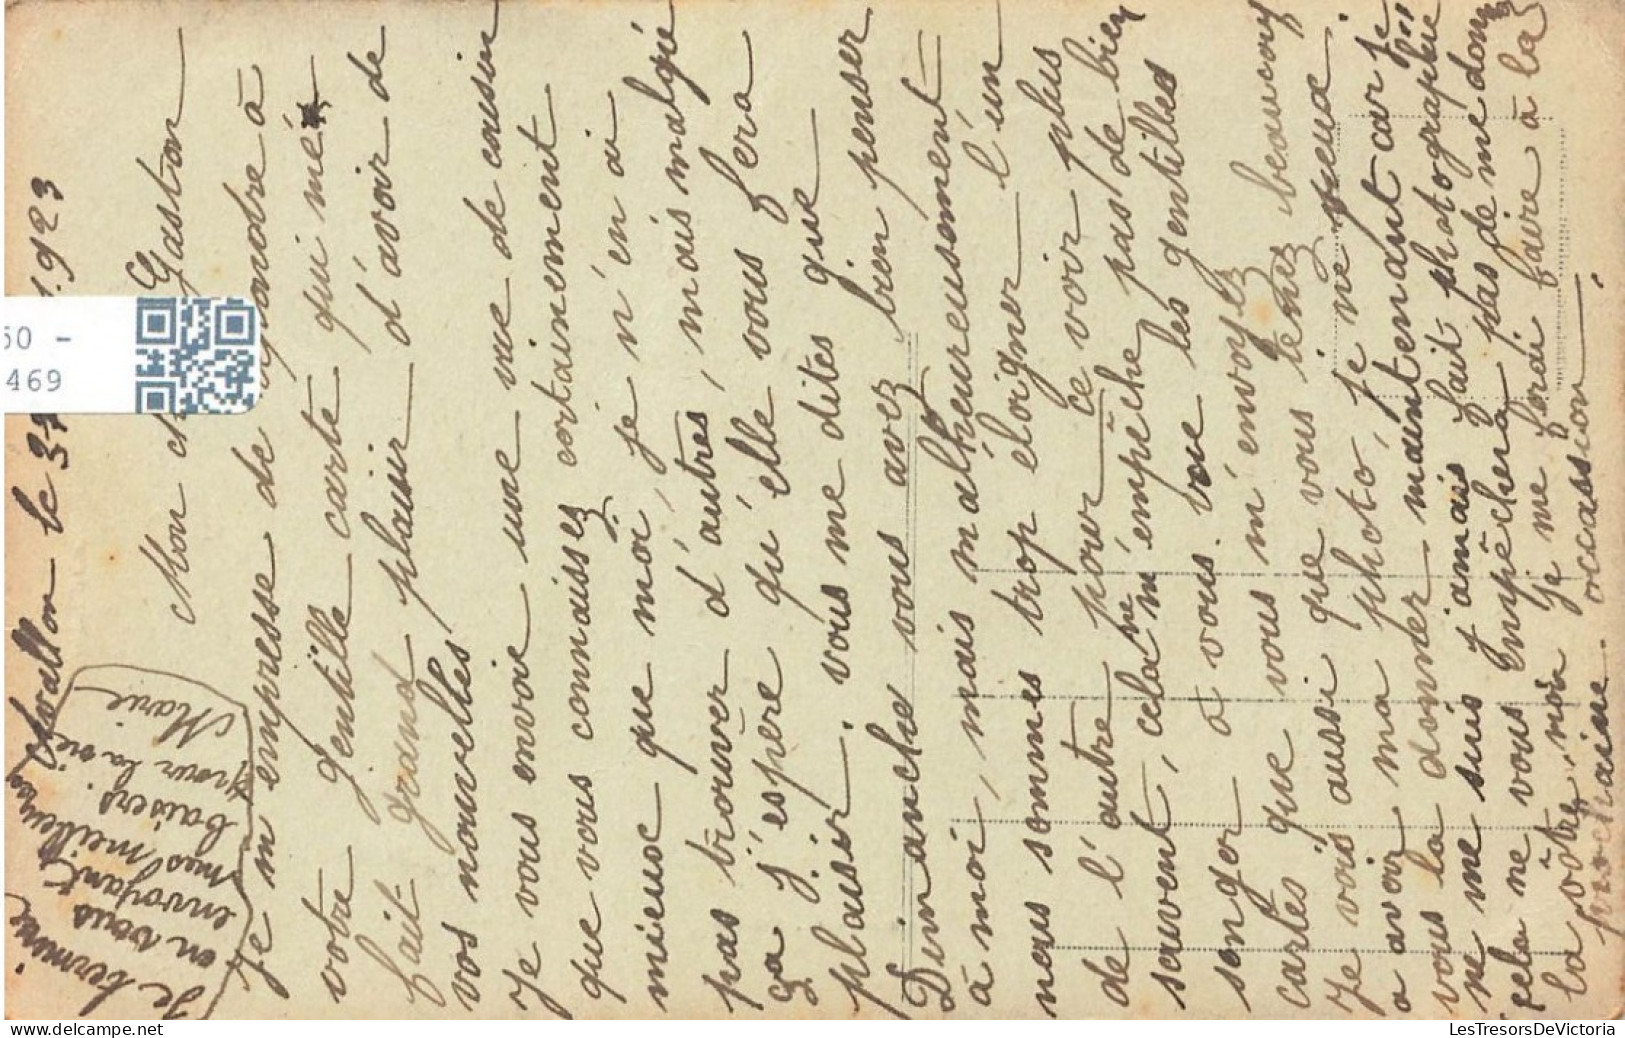 Avallon le 1923
Mon Gaston
Je m'empresse de répondre à
votre gentille carte qui m'é
fait grand plaisir d'avoir de
vos nouvelles
Je vous envoie une vue de cousin
que vous connaissez certainement
mieux que moi, je n'en ai
pas trouver d'autres, mais malgré
ça j'espère qu'elle vous fera
plaisir. vous me dites que
Dimanche vous avez bien penser
à moi, mais malheureusement
nous sommes trop éloigner l'un
de l'autre pour ce voir plus
souvent, cela ne m'empêche pas de bien
songer à vous. vue les gentilles
cartes que vous m'envoyez beaucoup
Je vois aussi que vous tenez
a avoir ma photo, je ne peux
vous la donner maintenant car je
ne me suis jamais fait photographié
cela ne vous empêchera pas de me donner
la vôtre, moi je me ferai faire à la
prochaine occassion.
Je termine
en vous
envoyant
mes meilleurs
baisers.
pour la vie
Marie
60 -
469
LesTresorsDeVictoria
je termine sur ebay - delcampe.net